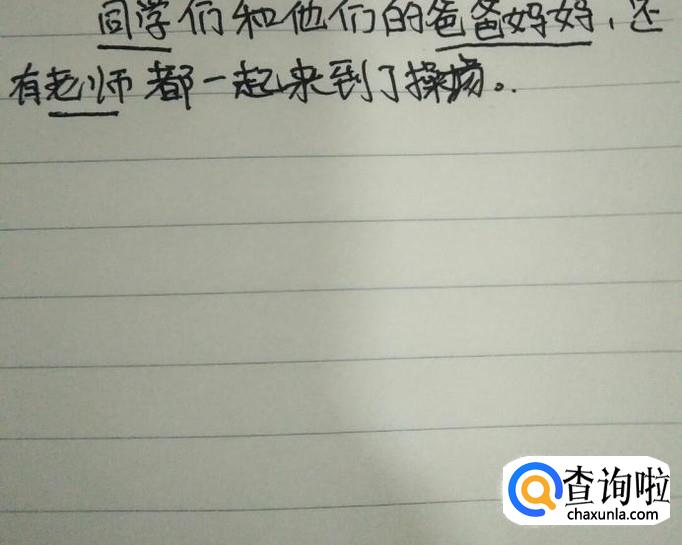 同学们和他们的爸爸妈妈，还
有老师都一起来到了操场。
查询啦
chaxunla.com